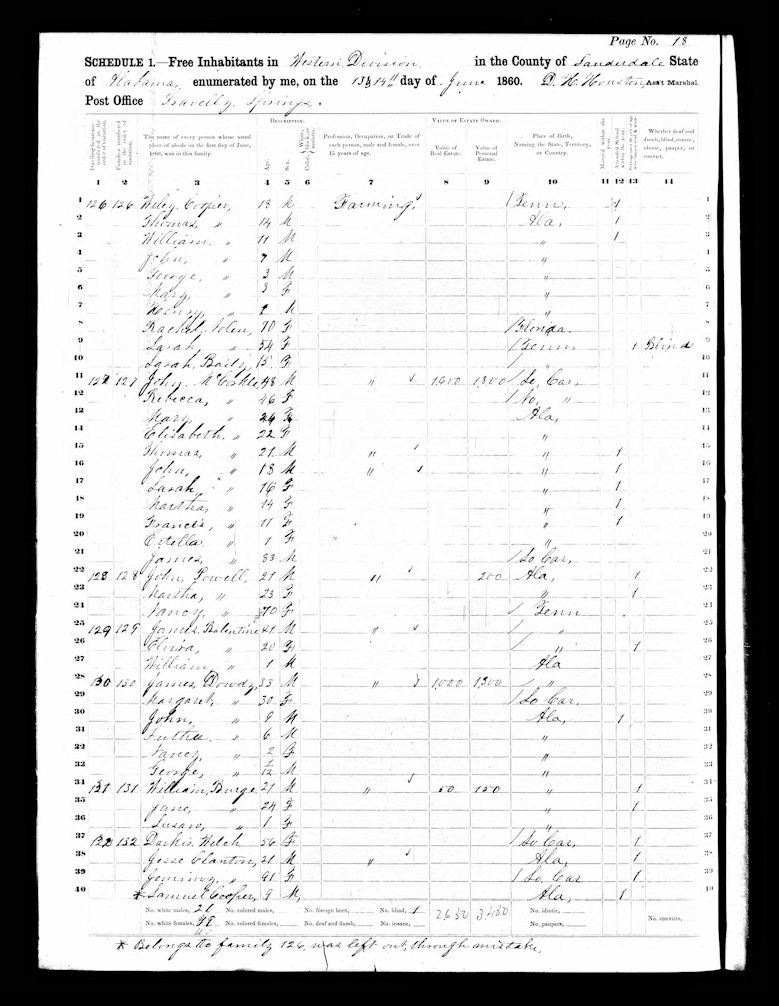 Page No. 18
SCHEDULE 1.—Free Inhabitants in Western Division in the County of Lauderdale State
of Alabama, enumerated by me, on the 13 & 14th day of June 1860. D. H. Houston, Ass't Marshal.
Post Office Gravelly Springs.
DESCRIPTION. VALUE OF ESTATE OWNED.
Dwelling-houses numbered in the order of visitation. Families numbered in the order of visitation. The name of every person whose usual place of abode on the first day of June, 1860, was in this family. Age. Sex. Color, Profession, Occupation, or Trade of each person, male and female, over 15 years of age. Value of Real Estate. Value of Personal Estate. Place of Birth, Naming the State, Territory, or Country. Married within the year. Attended School within the year. Whether deaf and dumb, blind, insane, idiotic, pauper, or convict.
1 2 3 4 5 6 7 8 9 10 11 12 13 14
1 126 126 Wiley Cooper, 18 M Farming / Tenn, 1 1
2 Thomas, " 14 M Ala, 1 2
3 William, " 11 M " 1 3
4 John, " 7 M " 4
5 George, " 3 M " 5
6 Mary, " 3 F " 6
7 Henry, " 2 M " 7
8 Rachel, Nolen, 70 F / Florida 8
9 Sarah, " 34 F / Tenn 1 Blind 9
10 Sarah, Baily, 15 F / 10
11 127 127 John, McCorkle, 48 M " 1,600 1,800 / So, Car, 11
12 Rebecca, " 46 F / No, " 12
13 Mary, " 24 F Ala, 13
14 Elisabeth, " 22 F " 14
15 Thomas, " 21 M " " 1 15
16 John, " 18 M " " 1 16
17 Sarah " 16 F " 1 17
18 Martha, " 14 F " 1 18
19 Francis, " 11 F " 1 19
20 Estella, " 1 F " 20
21 James, " 33 M / So Car, 21
22 128 128 John, Powell, 21 M " 200 Ala, 1 22
23 Martha, " 23 F " 1 23
24 Nancy, " 70 F / Tenn 24
25 129 129 James, Balentine 21 M " / " 25
26 Elvira, " 20 F / " 1 26
27 William, " 1 M Ala 27
28 130 130 James, Dowdy, 33 M " 1,000 1,300 / " 28
29 Margaret, " 30 F / So Car, 29
30 John, " 9 M Ala, 1 30
31 Luther " 6 M " 31
32 Nancy, " 2 F " 32
33 George, " 1/12 M " 33
34 131 131 William, Burge 21 M " 50 150 " 1 34
35 Jane, " 24 F " 1 35
36 Susan, " 1 F " 36
37 132 132 Darkis, Welch 56 F / So Car, 1 37
38 Jesse Clanton, 21 M " Ala, 1 38
39 Jemimy, " 91 F / So, Car 1 39
40 * Samuel Cooper, 9 M, Ala, 1 40
No. white males, 21 No. colored males, No. foreign born, No. blind, 1 2650 3,450 No. idiotic,
No. white females, No. colored females, No. deaf and dumb, No. insane, No. paupers, No. convicts,
* Belongs to family 126, was left out, through mistake.